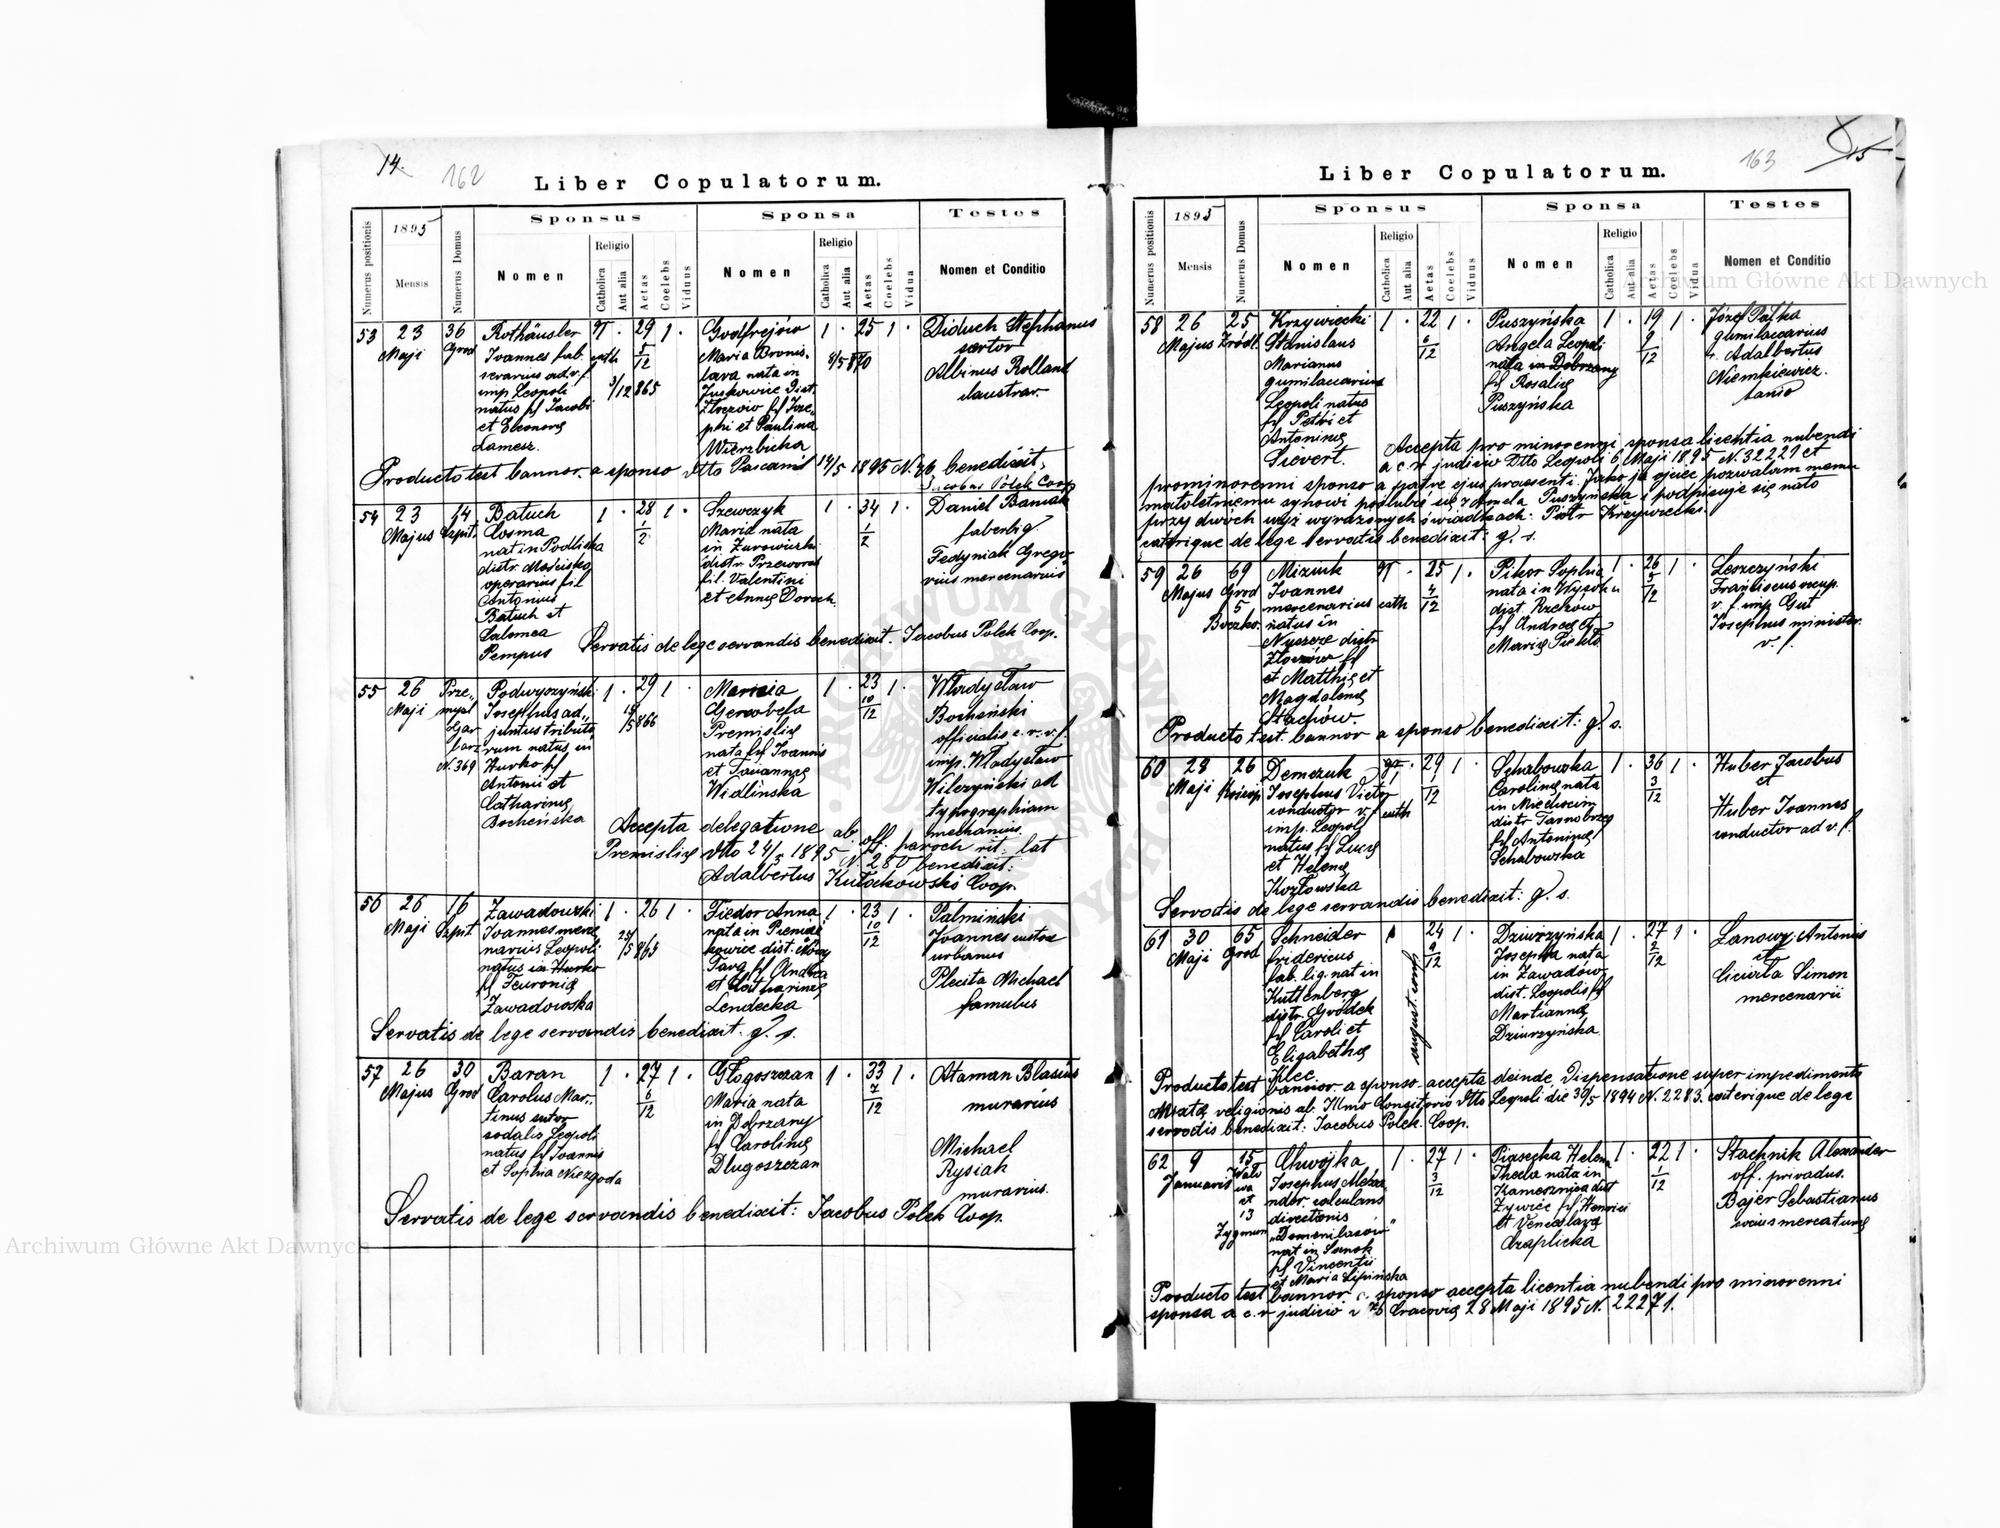 14.
162
Liber Copulatorum.
Numerus positionis
1895
Mensis
Numerus Domus
Sponsus
Nomen
Religio
Catholica
Aut alia
Aetas
Coelebs
Viduus
Sponsa
Nomen
Religio
Catholica
Aut alia
Aetas
Coelebs
Vidua
Testes
Nomen et Conditio
53 23 36 Rothäusler 29 1 . Godfrejów 1 . 25 1 . Diduch Stephanus
Maji Grod Ioannes fab. cath 5/12 Maria Bronis- 8/5 870 sartor
serarius ad v. f. lava nata in Albinus Rolland
imp Leopoli 3/12 865 Juskowice Dist. claustrar.
natus Iacobi Złoczów Jose-
et Eleonorę phi et Paulina
Lamesz. Wierzbicka
Producto test bannor. a sponso dtto 14/5 1895 N. 76 benedixit:
Jacobus Polek Coop
54 23 14 Batuch 1 . 28 1 . Szewczyk 1 . 34 1 . Daniel Baniak
Majus Szpit. Cosma 1/2 Maria nata 1/2 faber lig
nat in Podliska in Żurowiczki Fedyniak Grego-
distr. Mościska distr. Przeworsk rius mercenarius
operarius fil fil. Valentini
Antonius et Annę Doroch.
Batuch et
Salomea
Pempus Servatis de lege servandis benedixit. Jacobus Polek Coop.
55 26 Prze- Podwyszyński 1 . 29 1 . Maria 1 . 23 1 . Władysław
Maji mysl Josephus ad- 5 866 10/12 Bocheński
Gar juntus tributo- Premislię officialis c. r. v. f.
barz rum natus in nata Ioannis imp. Władysław
N. 369 Hurko et Joannę Wilczyński ad
Antonii et Widlińska typographiam
Catharinę mechanius.
Bocheńska
Accepta delegatione ab off. paroch rit. lat
Premislię dtto 24/5 1895 N. 280 benedixit:
Adalbertus Kułakowski Coop.
56 26 16 Zawadowski 1 . 26 1 . Fiedor Anna 1 . 23 1 . Palmiński
Maji Szpit Ioannes merce- 5 865 nata in 10/12 Joannes custos
narius Leopoli dist. Nowy urbanus
natus in Hurko Targ Andrea Plecita Michael
Feuronię et Catharinę famulus
Zawadowska Lendecka
Servatis de lege servandis benedixit. q. s.
57 26 30 Baran 1 . 27 1 . Głogoszczan 1 . 33 1 . Ataman Blasius
Majus Grod Carolus Mar- 6/12 Maria nata 7/12 murarius
tinus sutor in Dobrzany
sodalis Leopoli Carolinę Michael
natus Ioannis Dlugoszczan Rysiak
et Sophia Niezgoda murarius.
Servatis de lege servandis benedixit: Jacobus Polek Coop.
163
15
Liber Copulatorum.
Numerus positionis
1895
Mensis
Numerus Domus
Sponsus
Nomen
Religio
Catholica
Aut alia
Aetas
Coelebs
Viduus
Sponsa
Nomen
Religio
Catholica
Aut alia
Aetas
Coelebs
Vidua
Testes
Nomen et Conditio
58 26 25 Krzywiecki 1 . 22 1 . Puszyńska 1 . 19 1 . Józef Pałka
Majus Źródl. Stanislaus 6/12 Angela Leopoli 9/12 gumilaccarius
Marianus nata in Dobrzany Adalbertus
gumilaccarius Rosalię Niemkiewicz.
Leopoli natus Puszyńska lanio
Petri et
Antoninę
Sievert. Accepta pro minorenni sponsa licentia nubendi
a c. r. judicio Dtto Leopoli 6 Maji 1895 N. 32221 et
pro minorenni sponso a patre ejus praesenti. Jako ja ojciec pozwalam memu
małoletniemu synowi poślubić się z Anielą Puszyńską i podpisuje się nato
przy dwóch wyż wyrażonych świadkach: Piotr Krzywiecki.
caeterique de lege servatis benedixit: q. s.
59 26 69 Mizuk 25 1 . Pikor Sophia 1 . 26 1 . Leszczyński
Majus Grod Ioannes 4/12 nata in Wysoka 5/12 Franciscus occup.
5 mercenarius cath dist. Rzeszów v. f. imp Gut
Boczko. natus in Andreę et Josephus minister
Nuszcze distr Marię Piekło v. f.
Złoczów
et Matthię et
Magdalenę
Stachów.
Producto test. bannor a sponso benedixit: q. s.
60 28 26 Demczuk 29 1 . Schabowska 1 . 36 1 . Huber Jacobus
Maji Kościop Josephus Victor 1/12 Carolinę nata 3/12 et
conductor v. f cath in Miechocim Huber Ioannes
imp. Leopoli distr Tarnobrzeg conductor ad v. f.
natus Lucę Antoninę
et Helenę Schabowska
Kozłowska
Servatis de lege servandis benedixit: q. s.
61 30 65 Schneider 24 1 . Dziurzyńska 1 . 27 1 . Łanowy Antonius
Maji Grod Fridericus 9/12 Josepha nata 2/12 et
fab. lig. nat in in Zawadów Ciciała Simon
Kuttenberg august. conf. dist. Leopolis mercenarii
distr. Gródek Martiannę
Caroli et Dziurzyńska
Elisabethę
Klec
Producto test bannor. a sponso accepta deinde Dispensatione super impedimento
mixtę religionis ab Illmo Consitorio dtto Leopoli die 30/5 1894 N. 2283. caeterique de lege
servatis benedixit: Jacobus Polek Coop.
62 9 15 Chwojka 1 . 27 1 . Piasecka Helena 1 . 22 1 . Stachnik Alexander
Januaris Wało Josephus Alexa- 3/12 Thecla nata in 1/12 off. privadus.
wa nder. calculans Kamesznica dist Bajer Sebastianus
et directionis Żywiec Henrici socius mercaturę
13 "Domenilasów" et Venceslava
Zygmun nat in Sanok Czaplicka
Vincentii
et Maria Lipińska
Producto test bannor a sponso accepta licentia nubendi pro minorenni
sponsa a c. r judicio Cracovię 28 Maji 1895 N. 22271.
Archiwum Główne Akt Dawnych
Archiwum Główne Akt Dawnych
ARCHIWUM GŁÓWNE AKT DAWNYCH